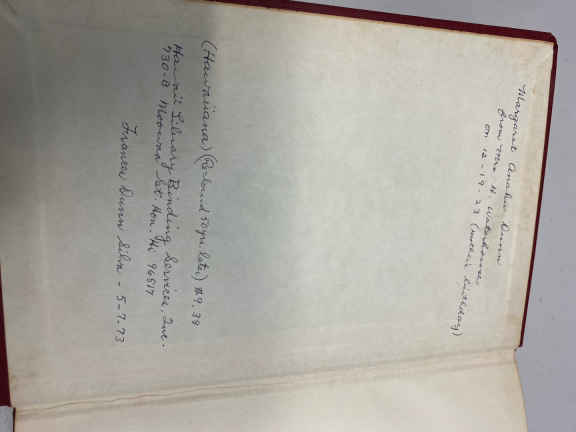 Margaret Anahu Dunn
from Mrs. H. Waterhouse
on 12-19-23 (mother's birthday)
(Hawaiiana) (Re-bound 50 yrs. later) $9.38
Hawaii Library Binding Services, Inc.
730-B Moowaa St. Hon. Hi 96817
Frances Dunn Silva - 5-7-73